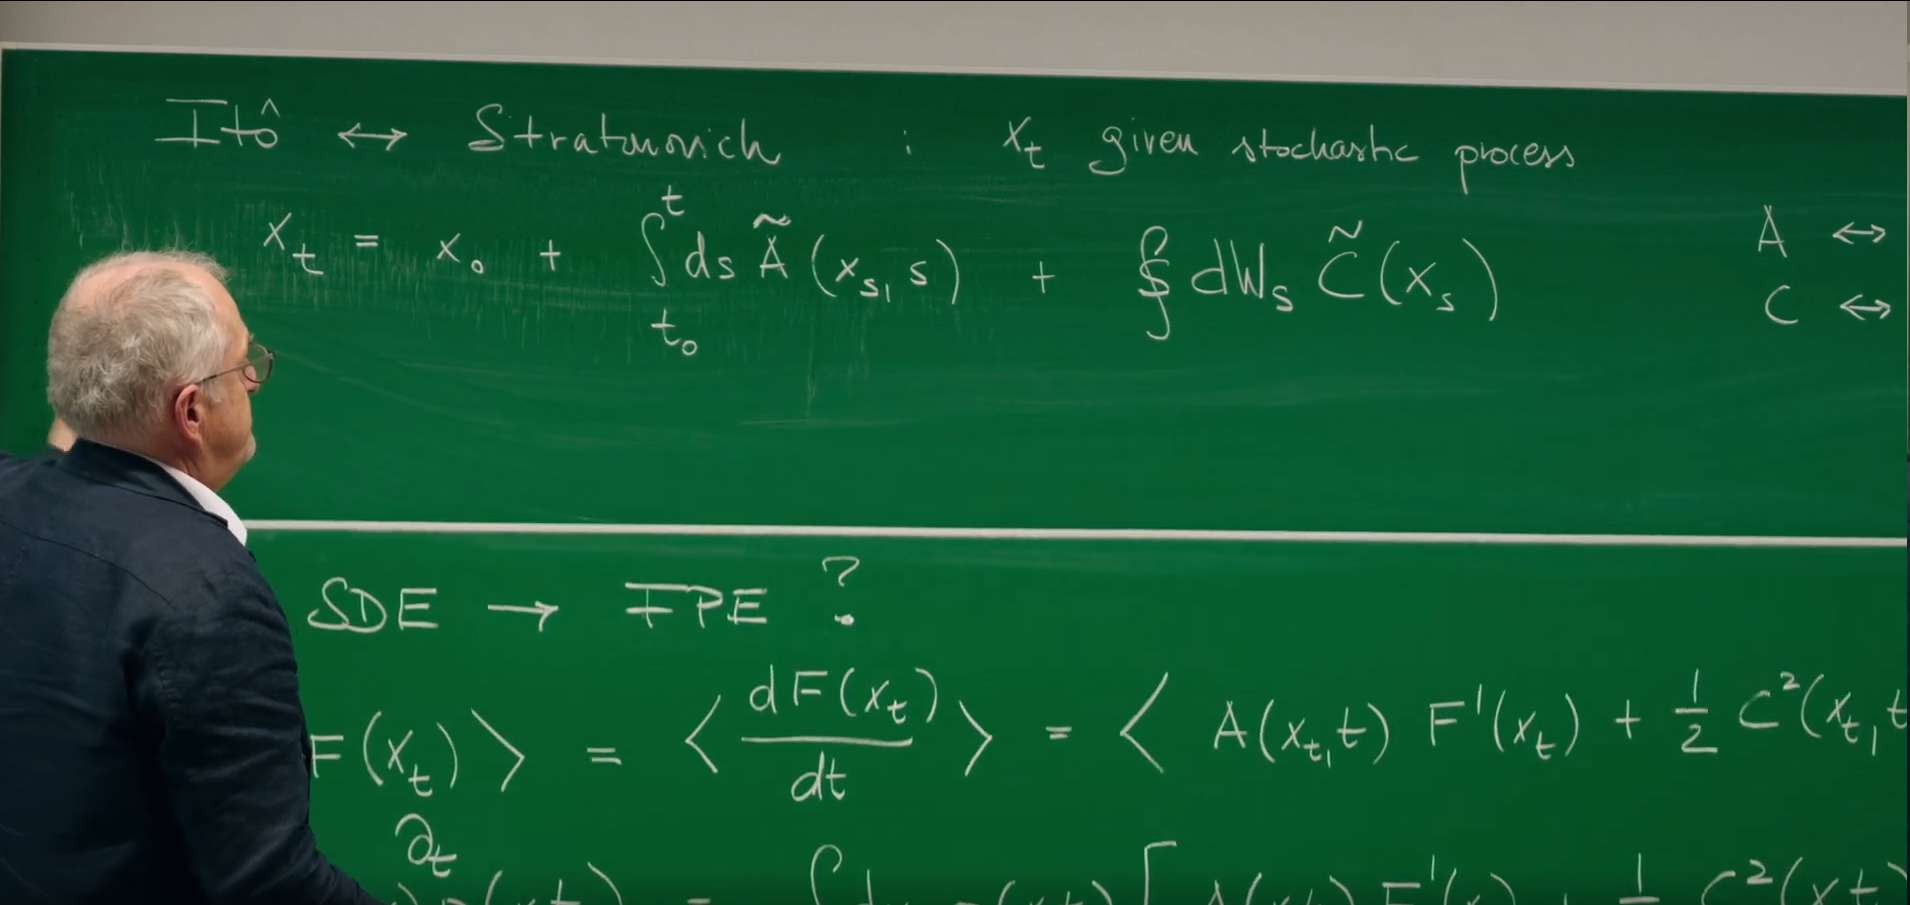 Itô ↔ Stratonovich : x_t given stochastic process
x_t = x_0 + ∫_{t_0}^{t} ds Ã(x_s, s) + ∮ dW_s C̃(x_s)
A ↔
C ↔
SDE → FPE ?
F(x_t)⟩ = ⟨dF(x_t)/dt⟩ = ⟨ A(x_t, t) F'(x_t) + 1/2 C²(x_t, t
∂_t